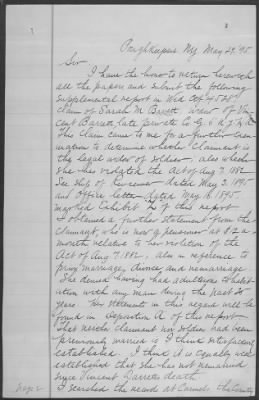 Poughkeepsie Ny May 29, 95
Sir
I have the honor to return herewith
all the papers and submit the following
Supplemental report in Wid Ctf
claim of Sarah M. Barrett widow of Vin
cent Barrett late private Co G 6 N.Y. H.A.
This claim came to me for a further exam
ination to determine whether Claimant is
the legal widow of soldier, also whether
she has violated the Act of Aug 7, 1882.
See slip of Reviewer dated May 3, 1895
and Office letter dated May 18, 1895
marked Exhibit of this report
I obtained a further statement from the
claimant, who is now a pensioner at $12 a
month, relative to her violation of the
Act of Aug 7, 1882, also in reference to
prior marriage, divorce, and remarriage.
She denied having had adulterous cohabit
ation with any man during the past
years. Her statements in this regard will be
found in Deposition A of this report
That neither claimant nor soldier had been
previously married is I think satisfactorily
established. I think it is equally well
established that she has not remarried
since Vincent Barrett's death.
I searched the records at Carmel, the County
Page 2